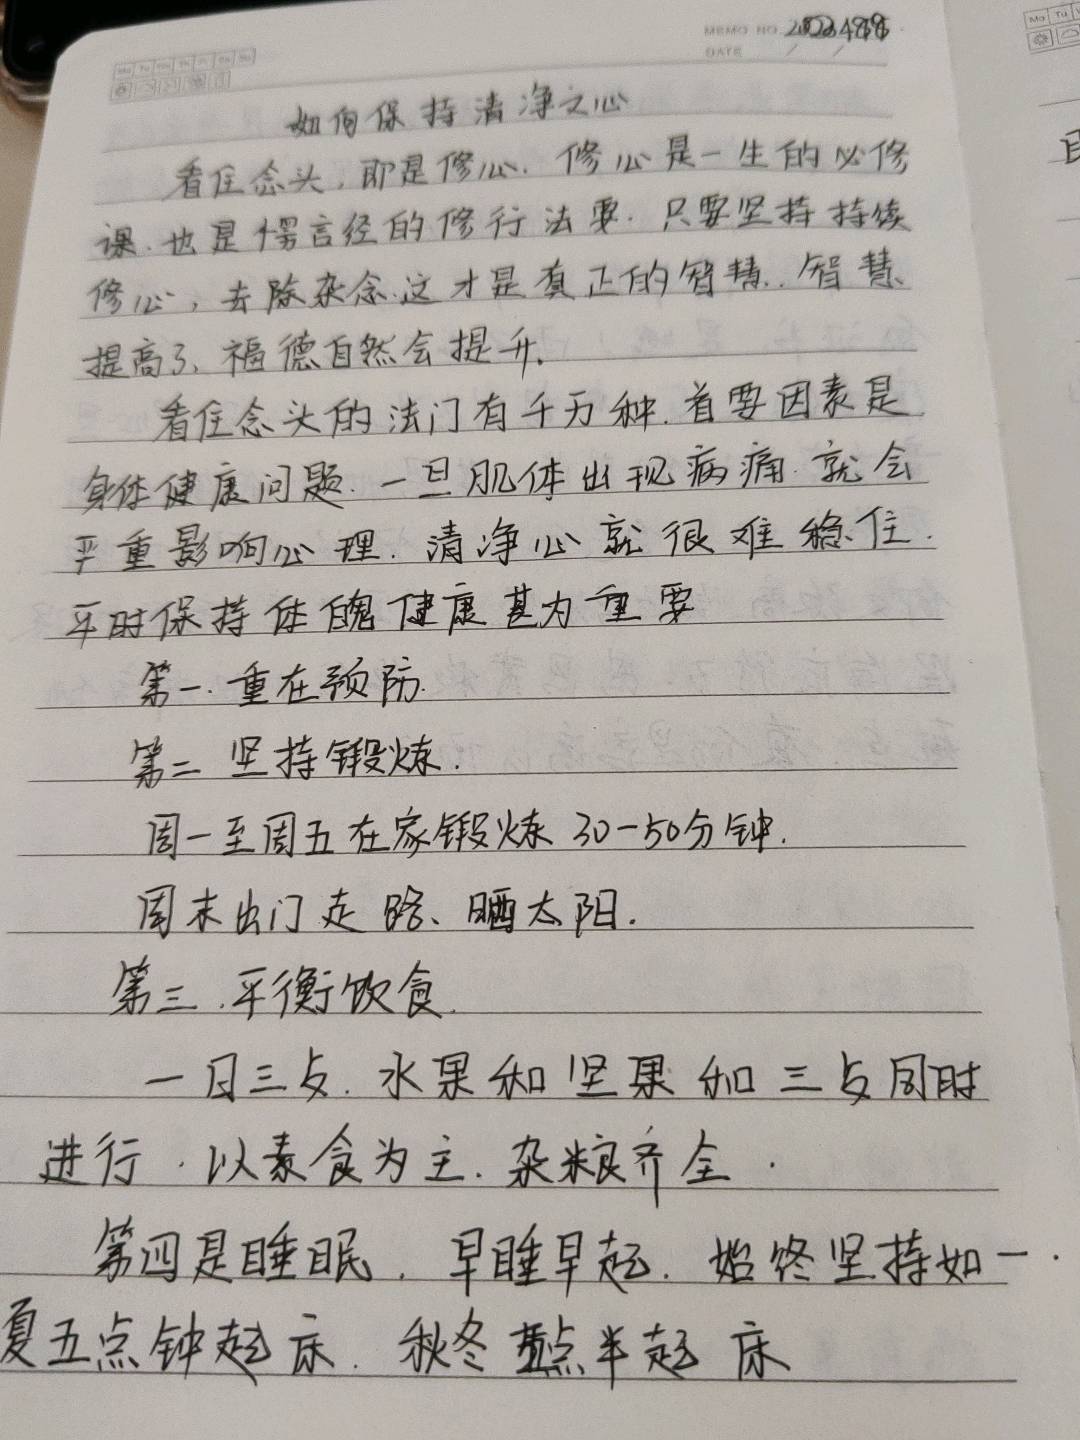 MEMO NO.
DATE / /
Mo Tu
如何保持清净之心
看住念头,即是修心. 修心是一生的必修
课.也是愣言经的修行法要.只要坚持持续
修心,去除杂念.这才是真正的智慧.智慧
提高了、福德自然会提升.
看住念头的法门有千万种.首要因素是
身体健康问题.一旦肌体出现病痛.就会
严重影响心理.清净心就很难稳住.
平时保持体魄健康甚为重要
第一.重在预防.
第二 坚持锻炼.
周一至周五在家锻炼30-50分钟.
周末出门走路、晒太阳.
第三.平衡饮食.
一日三歺.水果和坚果和三歺同时
进行.以素食为主.杂粮齐全.
第四是睡眠.早睡早起.始终坚持如一.
夏五点钟起床.秋冬 点半起床